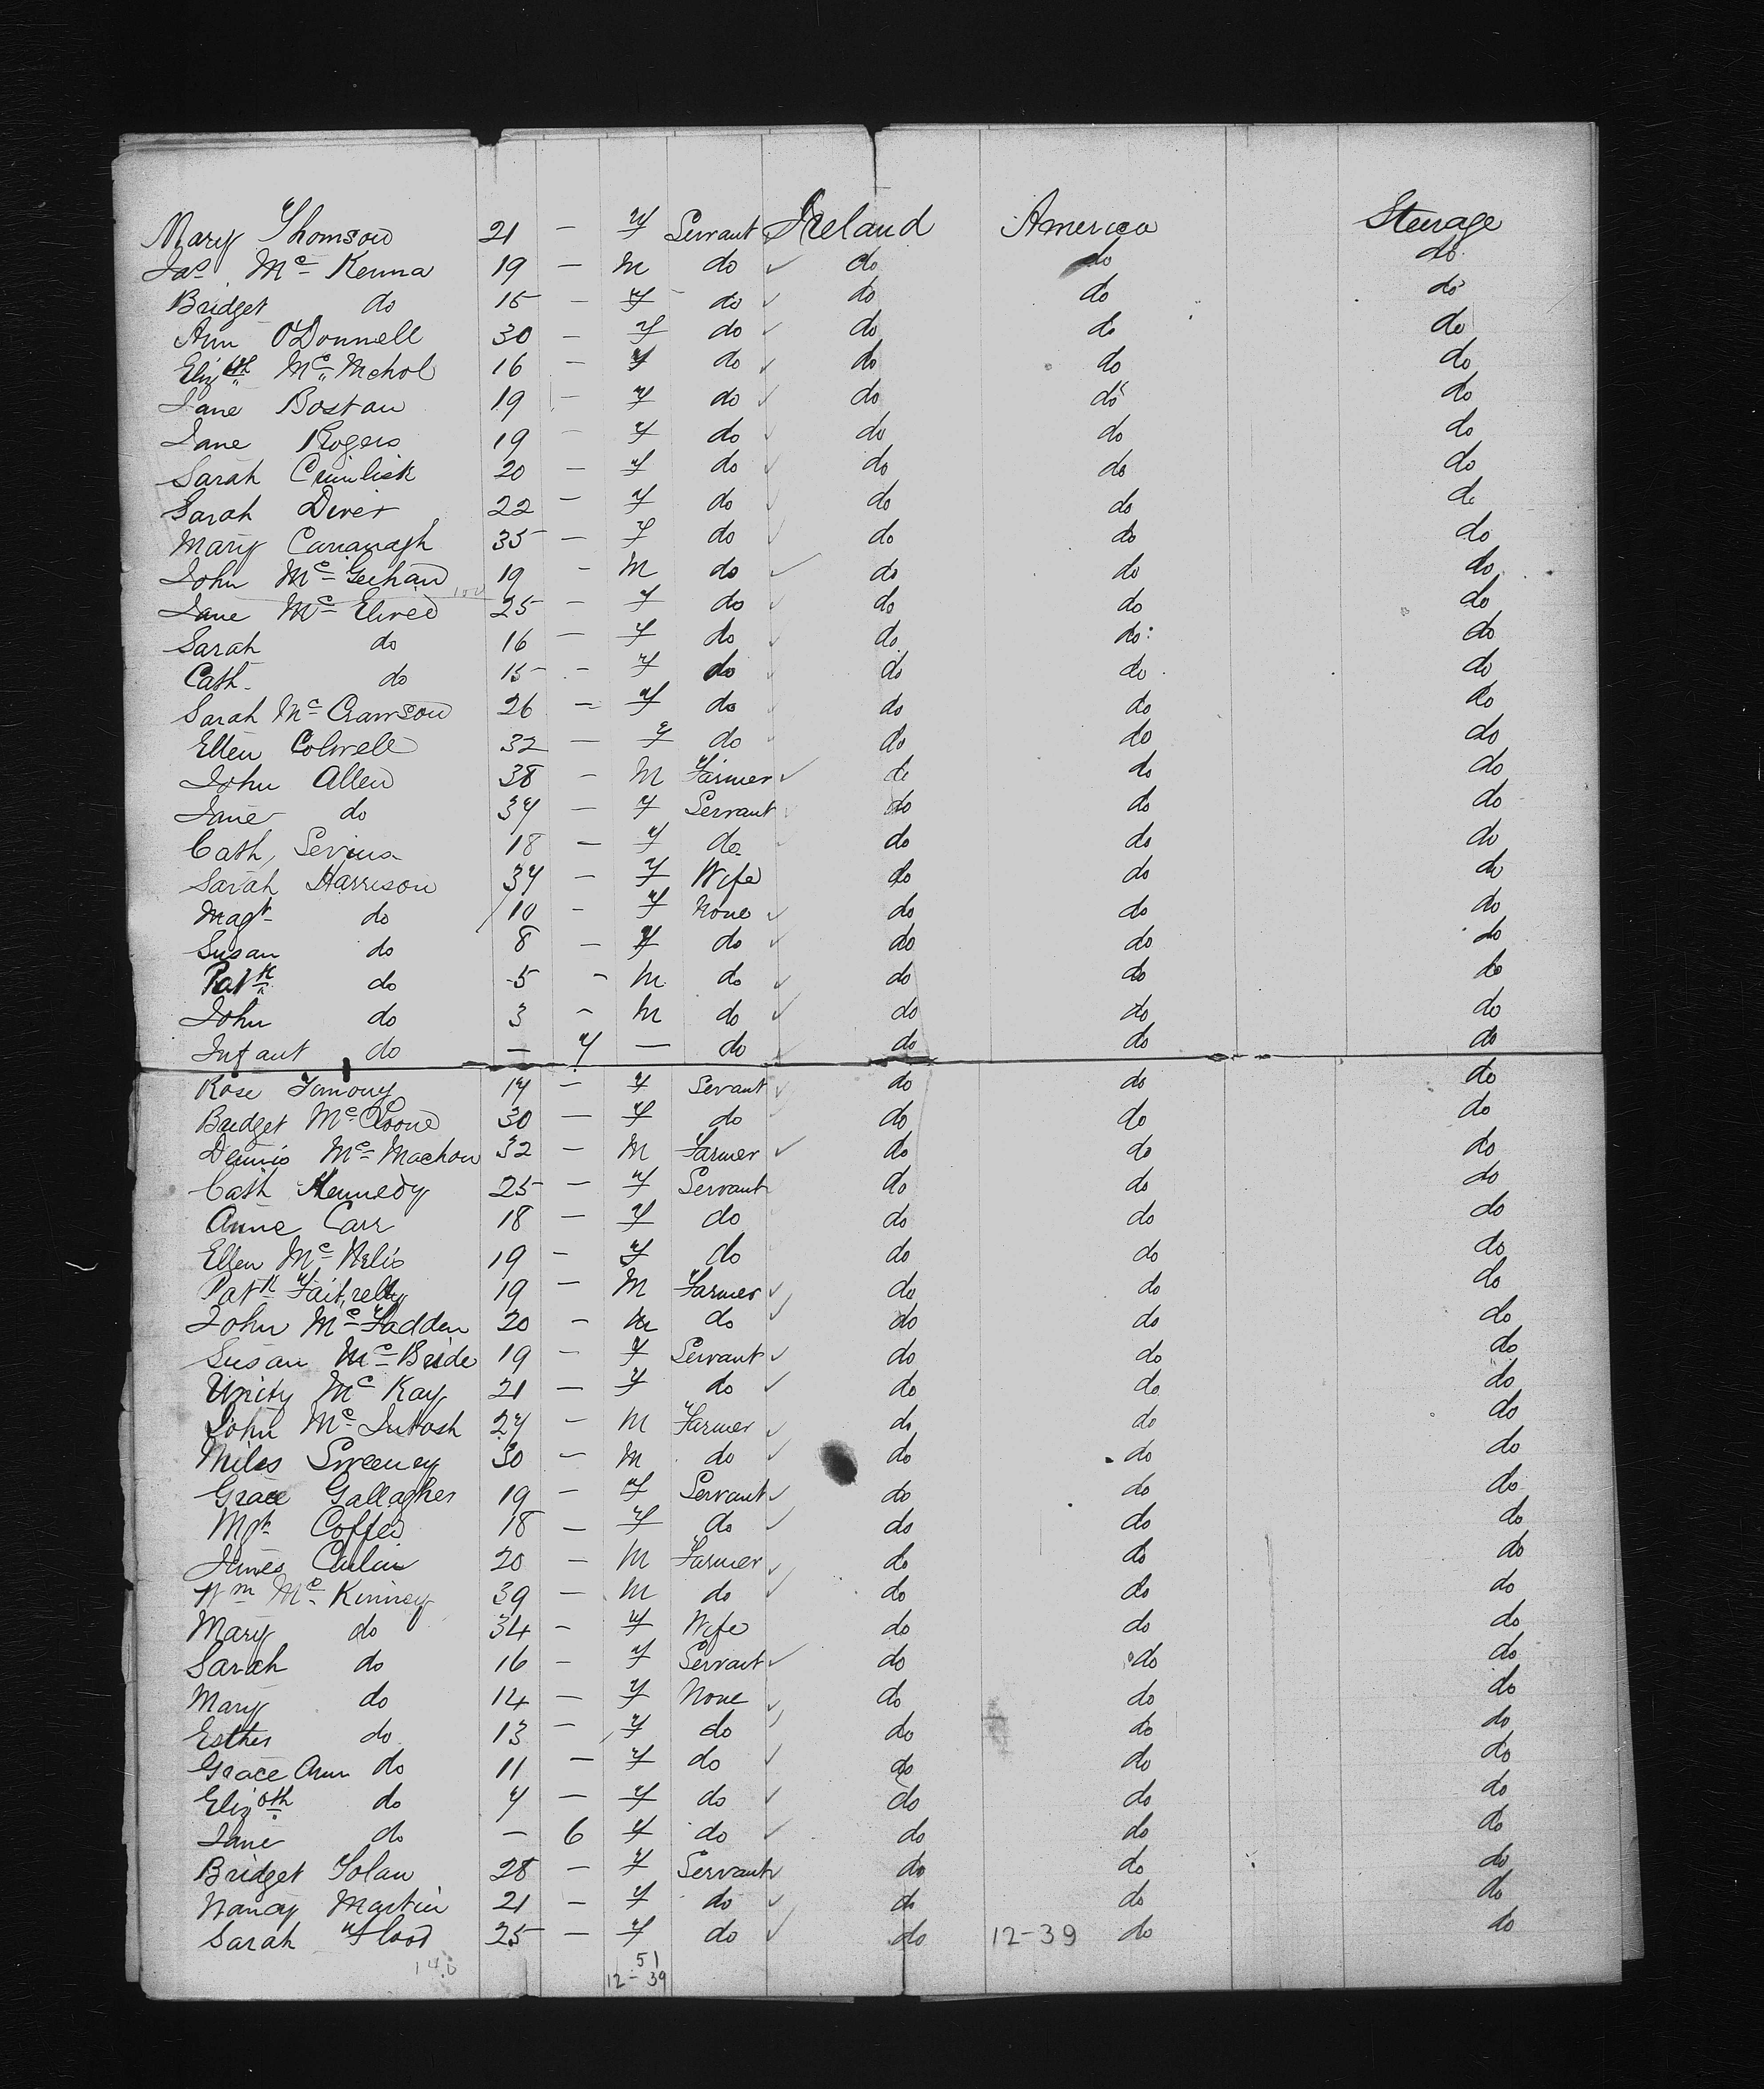 Mary Thomson 21 — F Servant Ireland America Steerage
Jas. Mc Kenna 19 — M do do do do
Bridget do 15 — F do do do do
Ann O'Donnell 30 — F do do do do
Elizth Mc Nichol 16 — F do do do do
Jane Bostan 19 — F do do do do
Jane Rogers 19 — F do do do do
Sarah 20 — F do do do do
Sarah Diver 22 — F do do do do
Mary Cavanagh 35 — F do do do do
John Mc Geehan 19 — M do do do do
Jane Mc Elwee 25 — F do do do do
Sarah do 16 — F do do do do
Cath. do 15 — F do do do do
Sarah Mc Crawson 26 — F do do do do
Ellen Colwell 32 — F do do do do
John Allen 38 — M Farmer do do do
Jane do 37 — F Servant do do do
Cath. 18 — F do do do do
Sarah Harrison 37 — F Wife do do do
Magt do 10 — F None do do do
Susan do 8 — F do do do do
Patk do 5 — M do do do do
John do 3 — M do do do do
Infant do — 7 — do do do do
Rose 17 — F Servant do do do
Bridget Mc Cloone 30 — F do do do do
Dennis Mc Machon 32 — M Farmer do do do
Cath Kennedy 25 — F Servant do do do
Anne Carr 18 — F do do do do
Ellen Mc Nelis 19 — F do do do do
Patk 19 — M Farmer do do do
John Mc Fadden 20 — M do do do do
Susan Mc Bride 19 — F Servant do do do
Unity Mc Kay 21 — F do do do do
John Mc Intosh 27 — M Farmer do do do
Miles Sweeney 30 — M do do do do
Grace Gallagher 19 — F Servant do do do
Mgt Coffey 18 — F do do do do
James Carlin 20 — M Farmer do do do
Wm Mc Kinney 39 — M do do do do
Mary do 34 — F Wife do do do
Sarah do 16 — F Servant do do do
Mary do 14 — F None do do do
Esther do 13 — F do do do do
Grace Ann do 11 — F do do do do
Elizth do 7 — F do do do do
Jane do — 6 F do do do do
Bridget Tolan 28 — F Servant do do do
Nancy Martin 21 — F do do do do
Sarah Flood 25 — F do do 12-39 do do
51
12-39